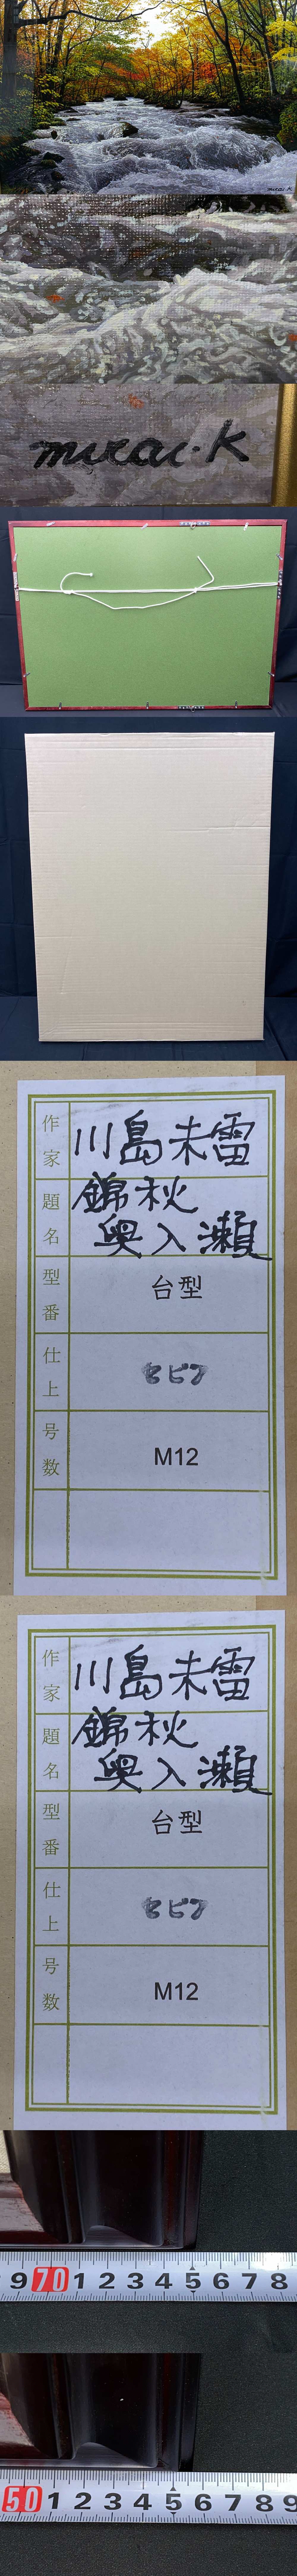 mirai.K
mirai.K
作家
川島未雷
題名
錦秋
奥入瀬
型番
台型
仕上
セピア
号数
M12
作家
川島未雷
題名
錦秋
奥入瀬
型番
台型
仕上
セピア
号数
M12
9 70 1 2 3 4 5 6 7 8
50 1 2 3 4 5 6 7 8 9